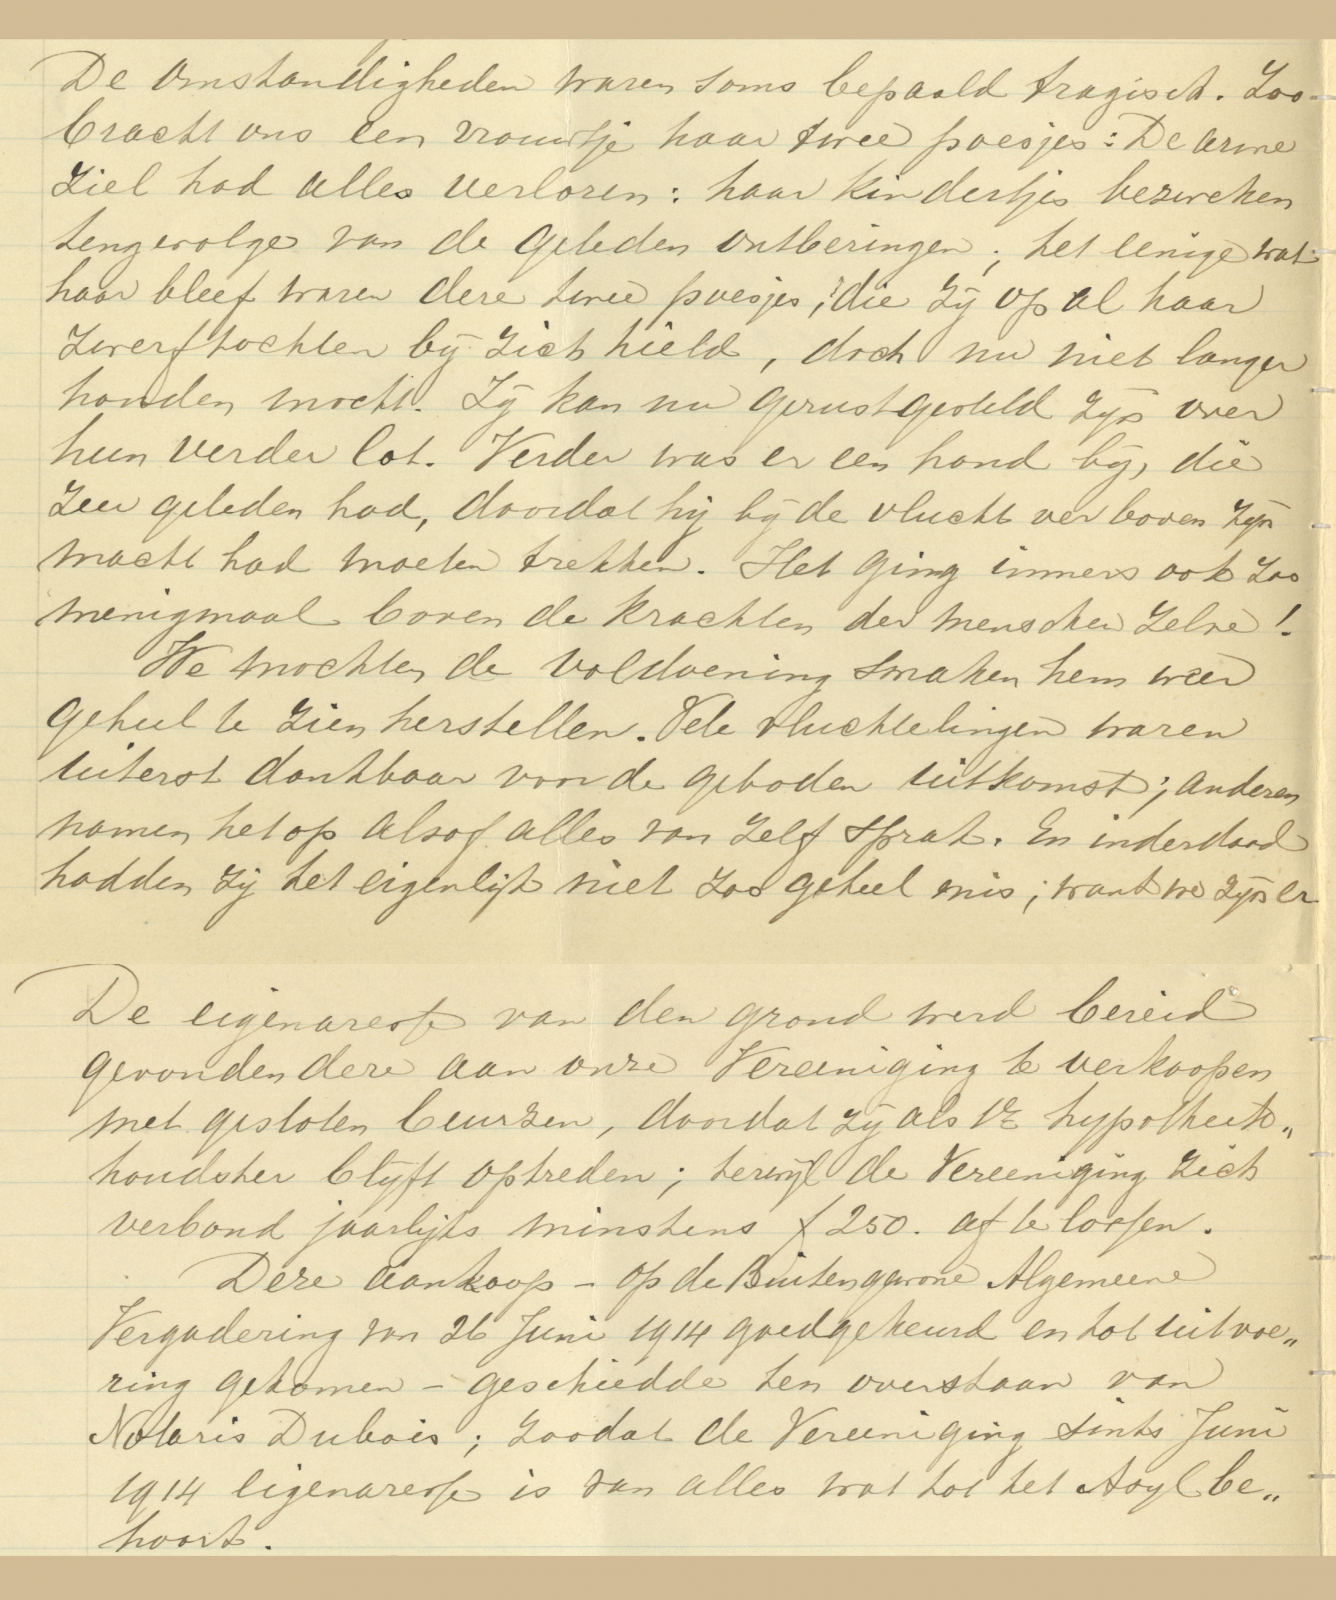 De omstandigheden waren soms bepaald tragisch. Zoo
bracht ons een vrouwtje haar twee poesjes: De arme
ziel had alles verloren: haar kindertjes bezweken
tengevolge van de geleden ontberingen; het eenige wat
haar bleef waren deze twee poesjes, die zij op al haar
zwerftochten bij zich hield, doch nu niet langer
houden mocht. Zij kan nu gerustgesteld zijn over
hun verder lot. Verder was er een hond bij, die
zeer geleden had, doordat hij bij de vlucht ver boven zijn
macht had moeten trekken. Het ging immers ook zoo
menigmaal boven de krachten der menschen zelve!
We mochten de voldoening smaken hem weer
geheel te zien herstellen. Vele vluchtelingen waren
uiterst dankbaar voor de geboden uitkomst; anderen
namen het op alsof alles van zelf sprak. En inderdaad
hadden zij het eigenlijk niet zoo geheel mis; want we zijn er
De eigenaresse van den grond werd bereid
gevonden deze aan onze Vereeniging te verkoopen
met gesloten beurzen, doordat zij als 1e hypotheek„
houdster blijft optreden; terwijl de Vereeniging zich
verbond jaarlijks minstens f 250. af te lossen.
Deze aankoop – op de Buitengewone Algemeene
Vergadering van 26 Juni 1914 goedgekeurd en tot uitvoe„
ring gekomen – geschiedde ten overstaan van
Notaris Dubois; zoodat de Vereeniging sints Juni
1914 eigenaresse is van alles wat tot het Asyl be„
hoort.